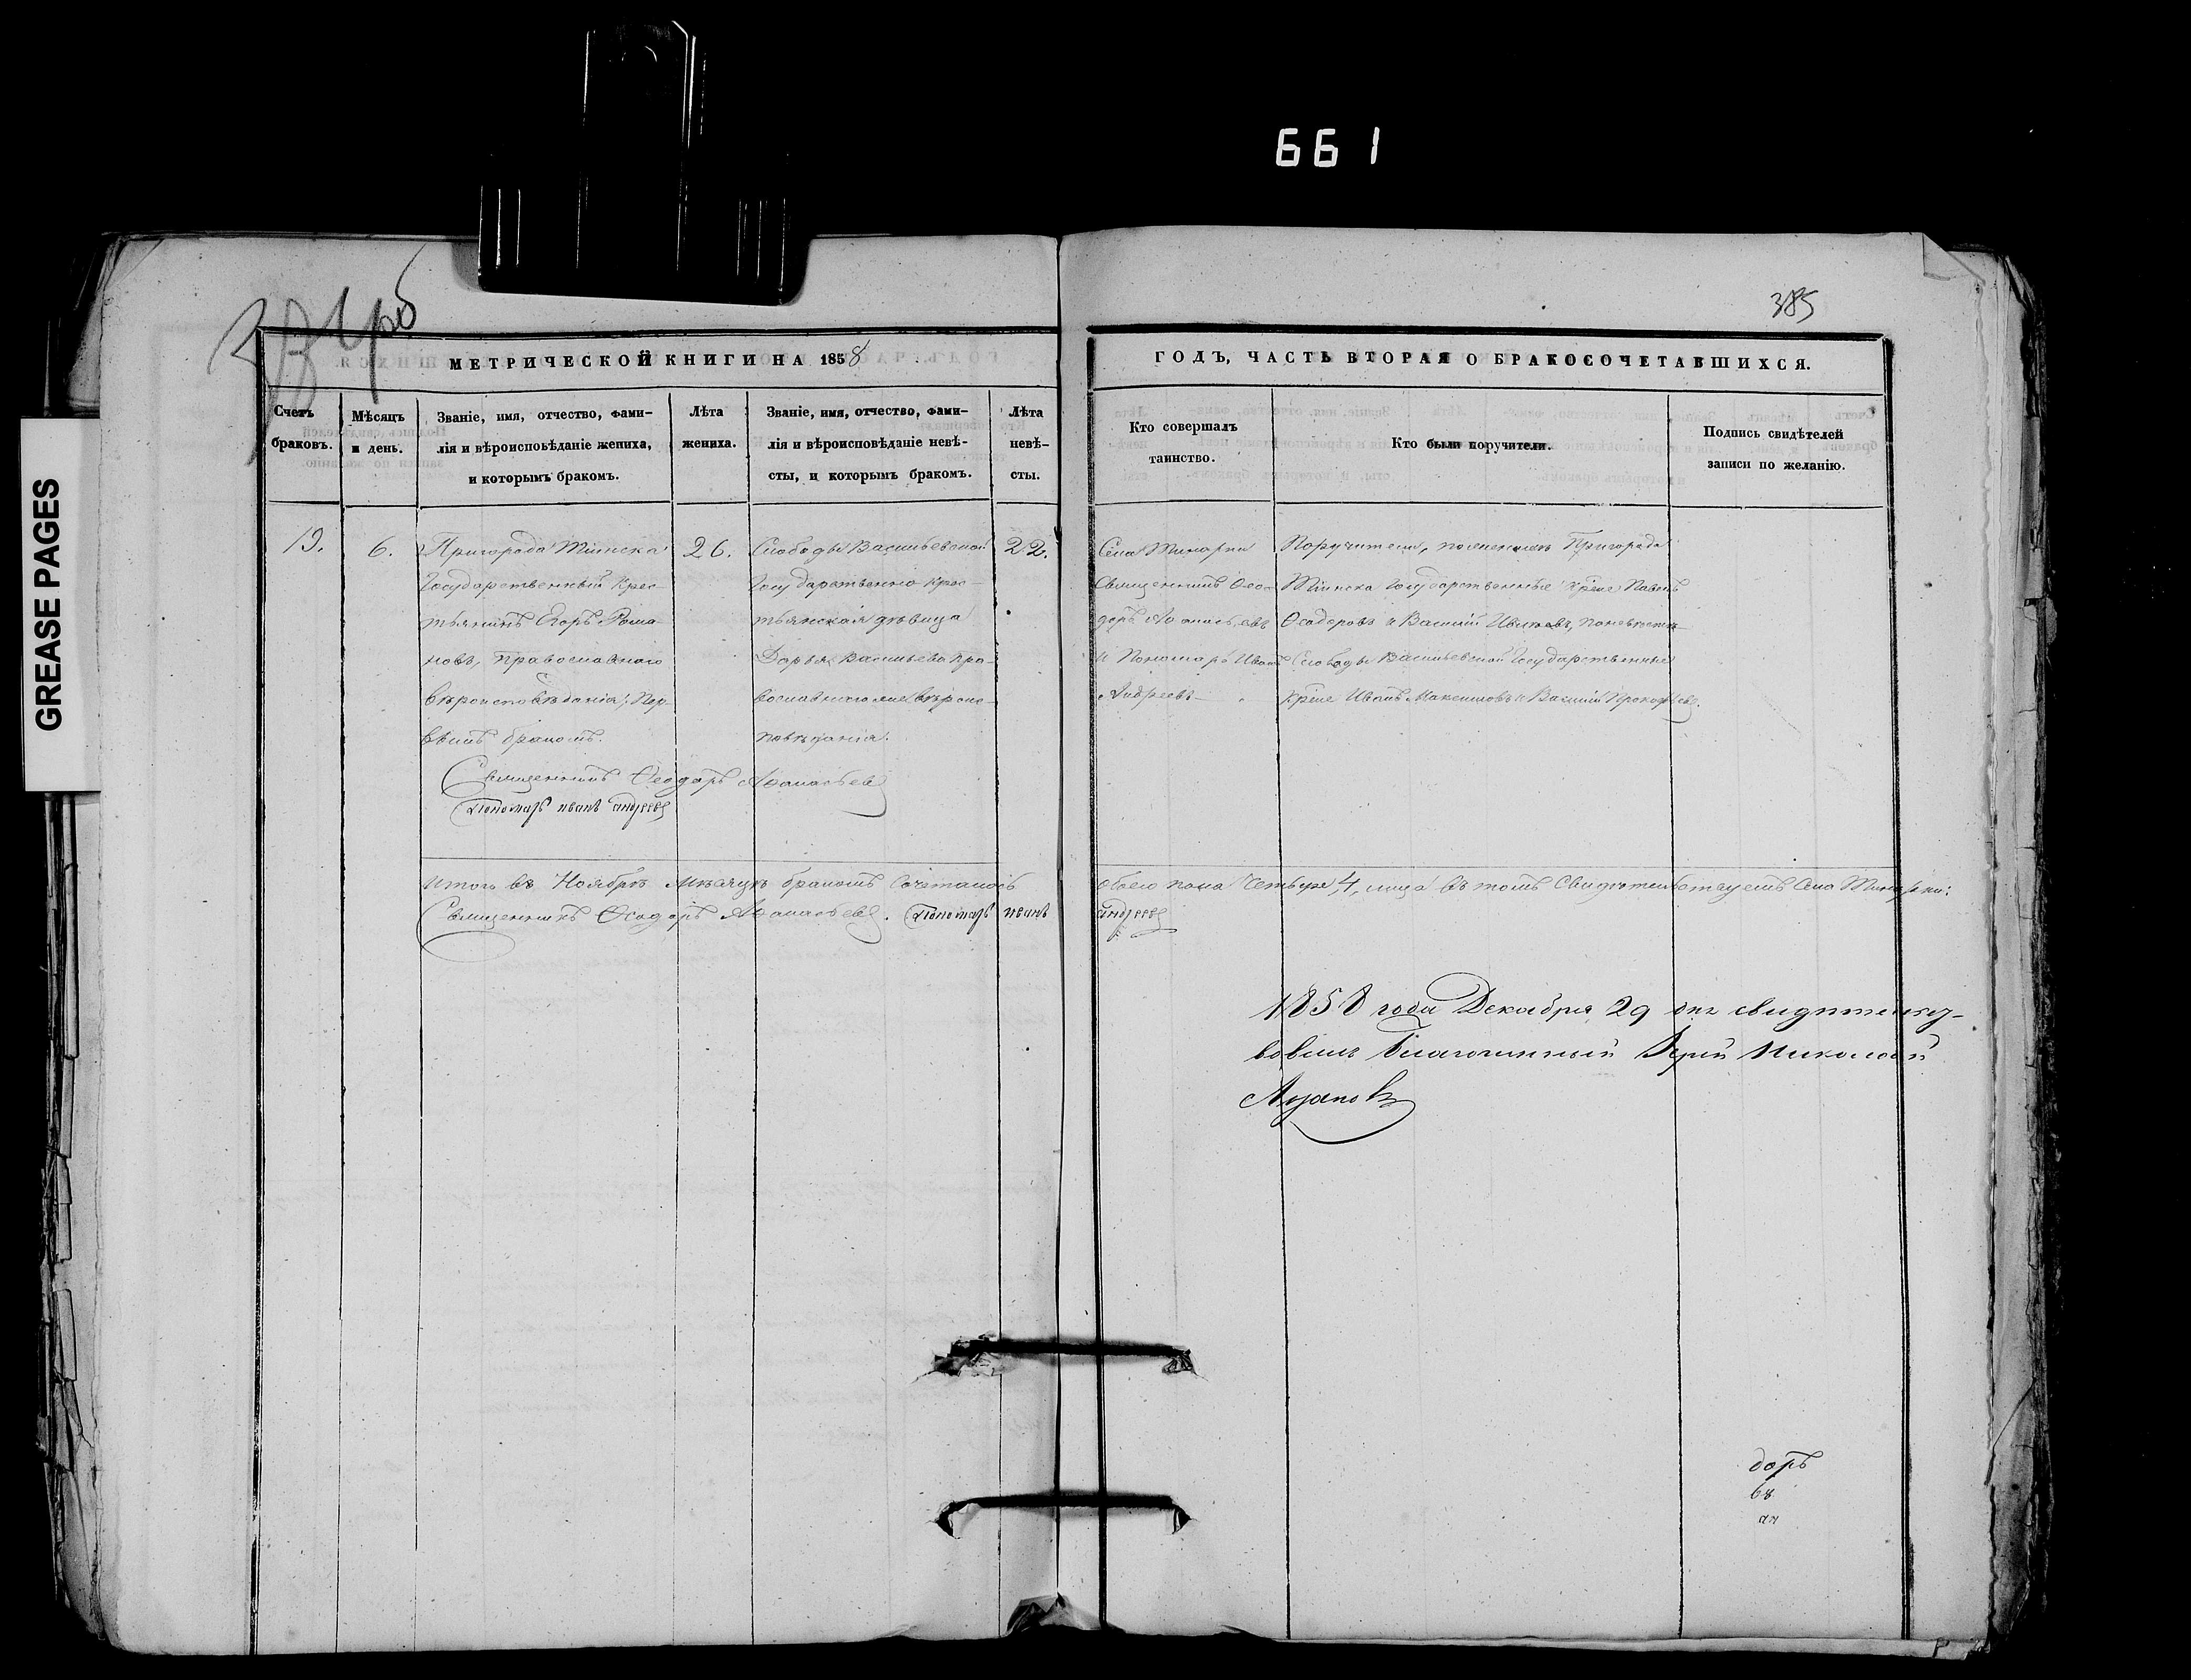 661
GREASE PAGES
385
МЕТРИЧЕСКОЙ КНИГИ НА 1858
ГОДЪ, ЧАСТЬ ВТОРАЯ О БРАКОСОЧЕТАВШИХСЯ.
Счетъ
браковъ.
Мѣсяцъ
и день.
Званіе, имя, отчество, фами-
лія и вѣроисповѣданіе жениха,
и которымъ бракомъ.
Лѣта
жениха.
Званіе, имя, отчество, фами-
лія и вѣроисповѣданіе невѣ-
сты, и которымъ бракомъ.
Лѣта
невѣ-
сты.
Кто совершалъ
таинство.
Кто были поручители.
Подпись свидѣтелей
записи по желанію.
19.
6.
Пригорода Тіинска
Государственный крес-
тьянинъ Егоръ Рома-
новъ, православнаго
вѣроисповѣданія, Пер-
вымъ бракомъ.
26.
Слободы Васильевской
Государственно крес-
тьянская дѣвица
Дарья Васильева пра-
вославнаго вѣроис-
повѣданія.
22.
Села
Священникъ Ѳео-
доръ Аѳанасьевъ
и Пономарь Иванъ
Андреевъ
Поручители, по женихѣ Пригорода
Тіинска Государственные крᲅне Павелъ
Ѳеодоровъ и Василій Ивановъ, по невѣстѣ
Слободы Васильевской Государственные
Иванъ Максимовъ и Василій Прокофьевъ.
Священникъ Ѳеодоръ Аѳанасьевъ
Пономарь иванъ андреевъ
Итого въ Ноябрѣ мѣсяцѣ бракомъ Сочеталось
обоего пола Четыре, 4, лица въ томъ Свидѣтельствуемъ Села
Священникъ Ѳеодоръ Аѳанасьевъ. Пономарь иванъ
андреевъ
1858 года Декабря 29 дня свидѣтельст-
вовалъ Благочинный Іерей Николай
доръ
въ